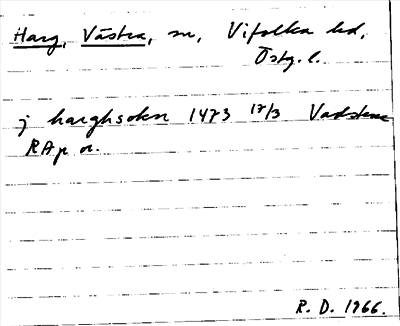 Harg, Västra, sn, Vifolka hd,
Östg. l.
j harghsokn 1473 17/3 Vadstena
RAp or.
R. D. 1966.